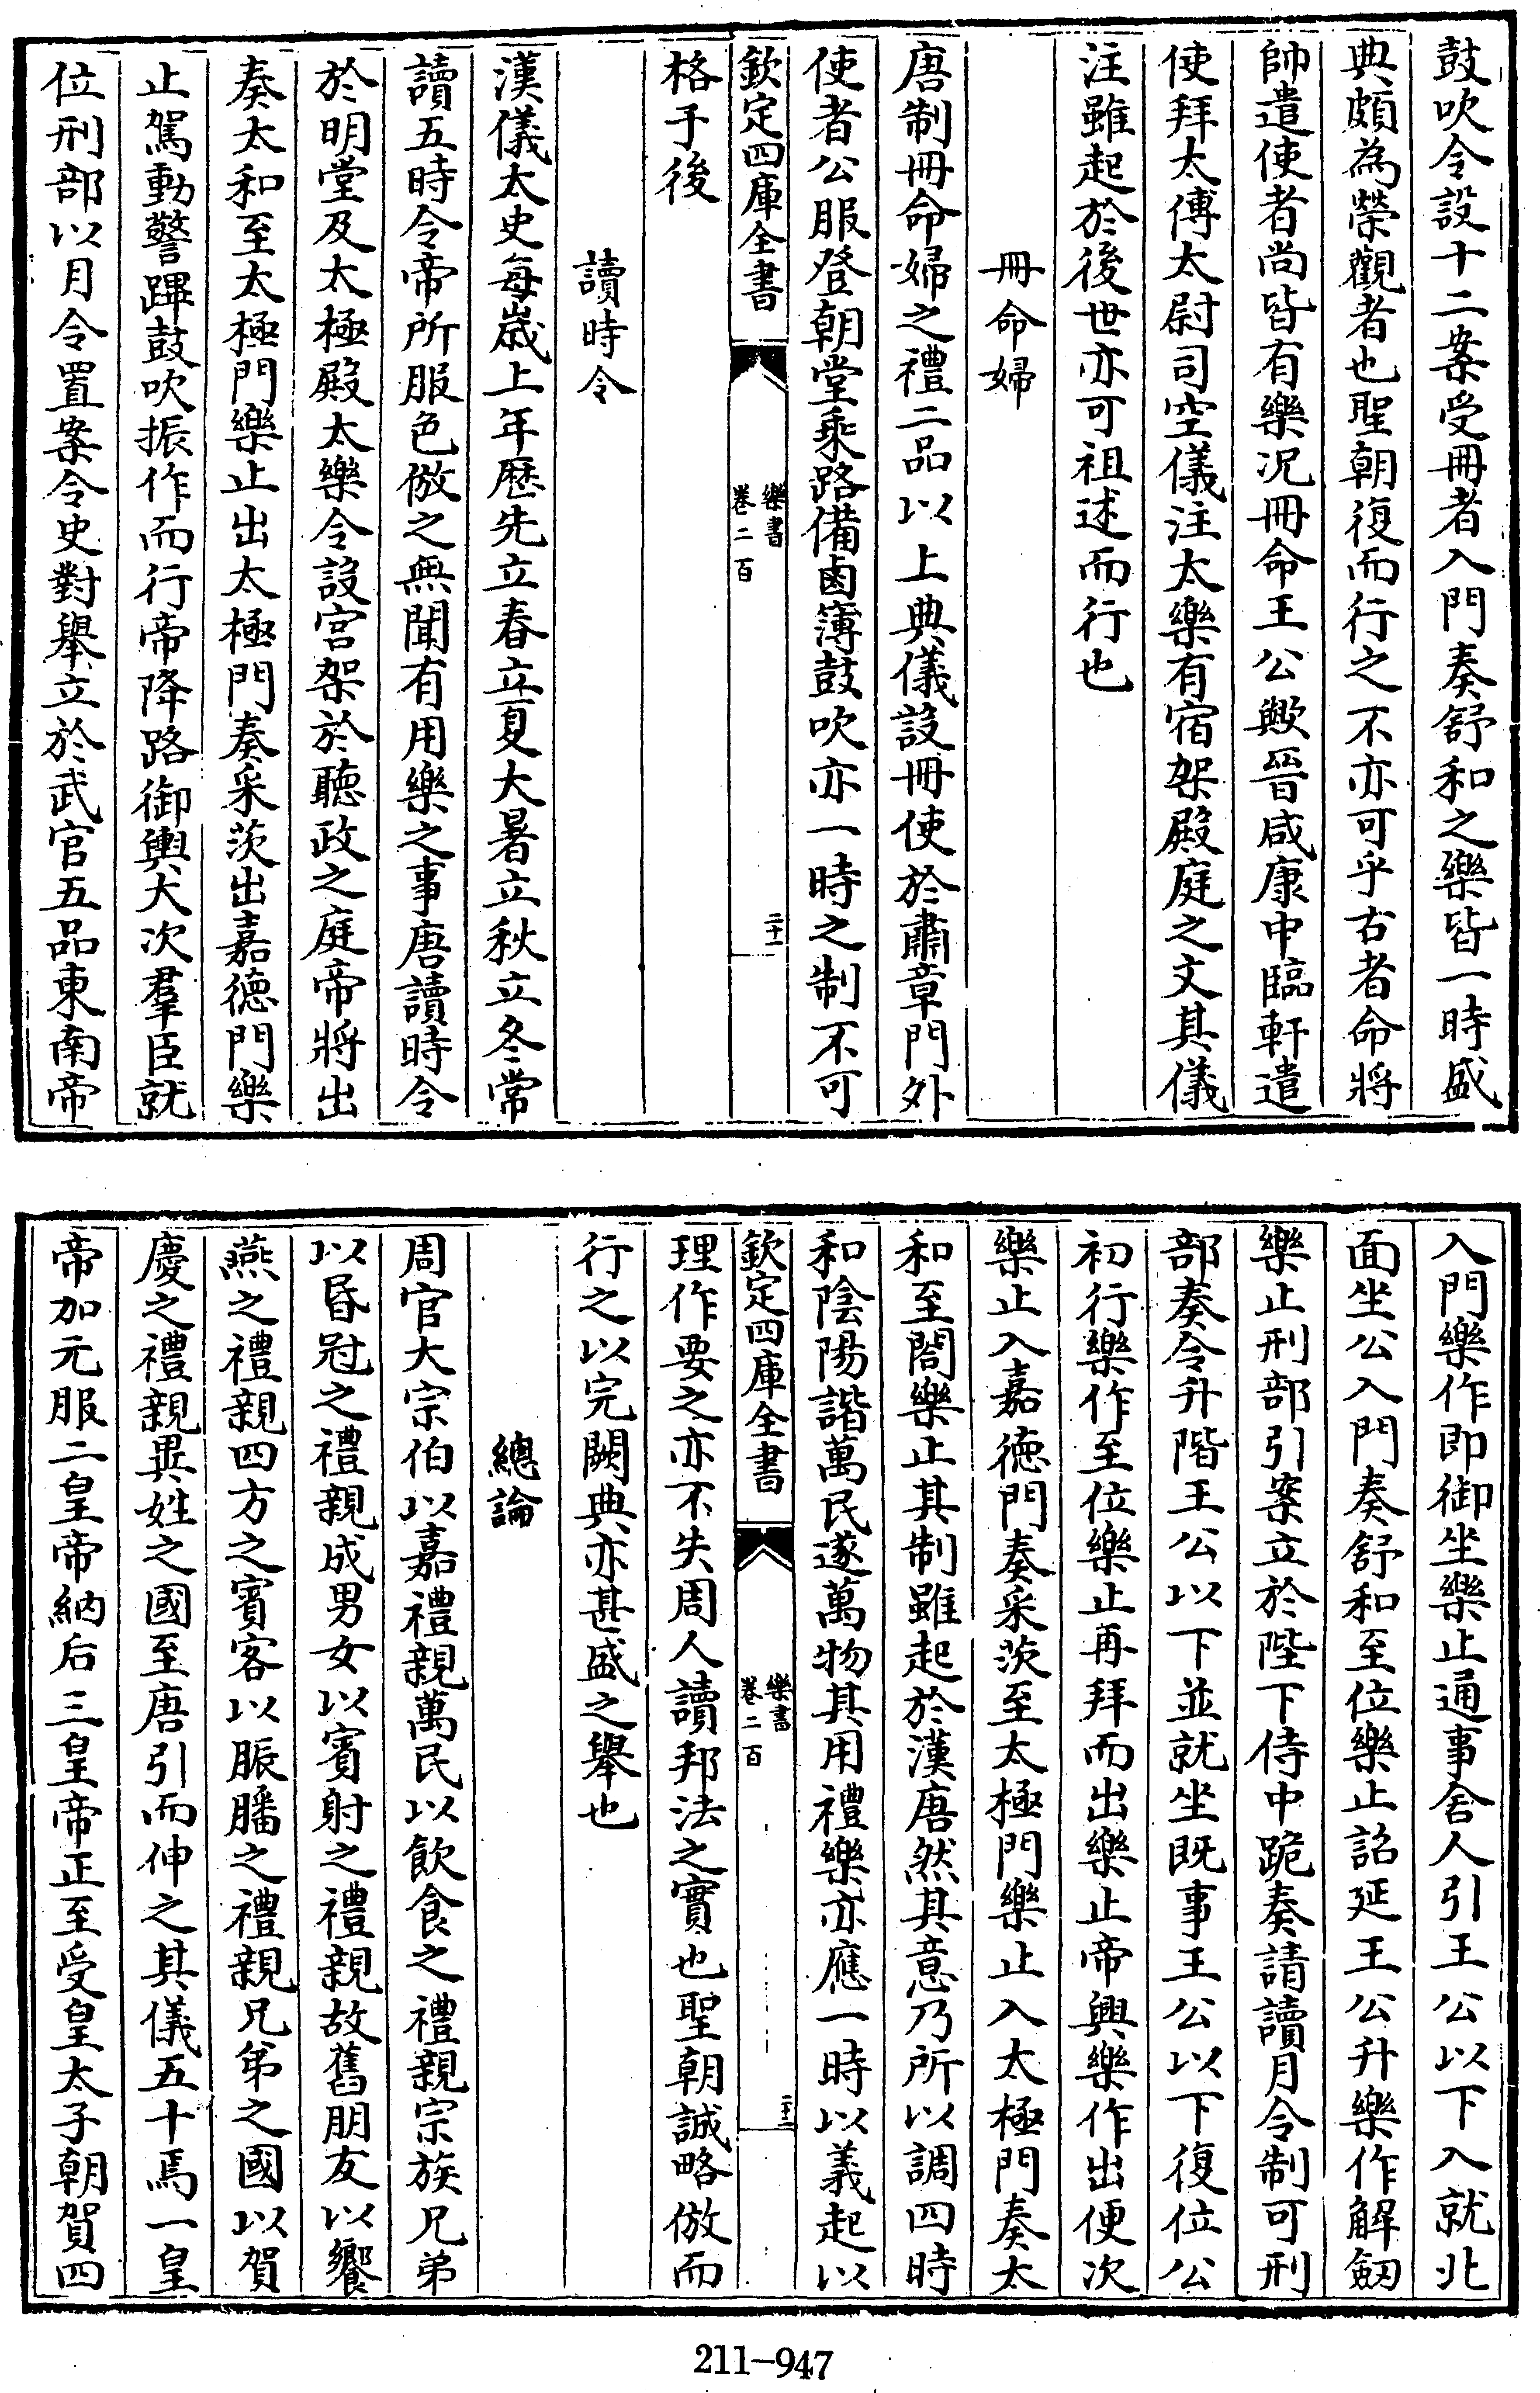 鼓吹令設十二案受冊者入門奏舒和之樂皆一時盛
典頗為榮觀者也聖朝復而行之不亦可乎古者命將
帥遣使者尚皆有樂况冊命王公歟晉咸康中臨軒遣
使拜太傅太尉司空儀注太樂有宿架殿庭之文其儀
注雖起於後世亦可祖述而行也
冊命婦
唐制冊命婦之禮二品以上典儀設冊使於肅章門外
使者公服登朝堂乘路備鹵簿鼓吹亦一時之制不可
欽定四庫全書
樂書
卷二百
二十一
格于後
讀時令
漢儀太史每歲上年歷先立春立夏大暑立秋立冬常
讀五時令帝所服色倣之無聞有用樂之事唐讀時令
於明堂及太極殿太樂令設宮架於聽政之庭帝將出
奏太和至太極門樂止出太極門奏采茨出嘉德門樂
止駕動警蹕鼓吹振作而行帝降路御輿大次羣臣就
位刑部以月令置案令史對舉立於武官五品東南帝
入門樂作即御坐樂止通事舍人引王公以下入就北
面坐公入門奏舒和至位樂止詔延王公升樂作解劔
樂止刑部引案立於陛下侍中跪奏請讀月令制可刑
部奏令升階王公以下並就坐既事王公以下復位公
初行樂作至位樂止再拜而出樂止帝興樂作出便次
樂止入嘉德門奏采茨至太極門樂止入太極門奏太
和至閤樂止其制雖起於漢唐然其意乃所以調四時
和陰陽諧萬民遂萬物其用禮樂亦應一時以義起以
欽定四庫全書
樂書
卷二百
二十二
理作要之亦不失周人讀邦法之實也聖朝誠略倣而
行之以完闕典亦甚盛之舉也
總論
周官大宗伯以嘉禮親萬民以飲食之禮親宗族兄弟
以昏冠之禮親成男女以賓射之禮親故舊朋友以饗
燕之禮親四方之賓客以脤膰之禮親兄弟之國以賀
慶之禮親異姓之國至唐引而伸之其儀五十焉一皇
帝加元服二皇帝納后三皇帝正至受皇太子朝賀四
211-947